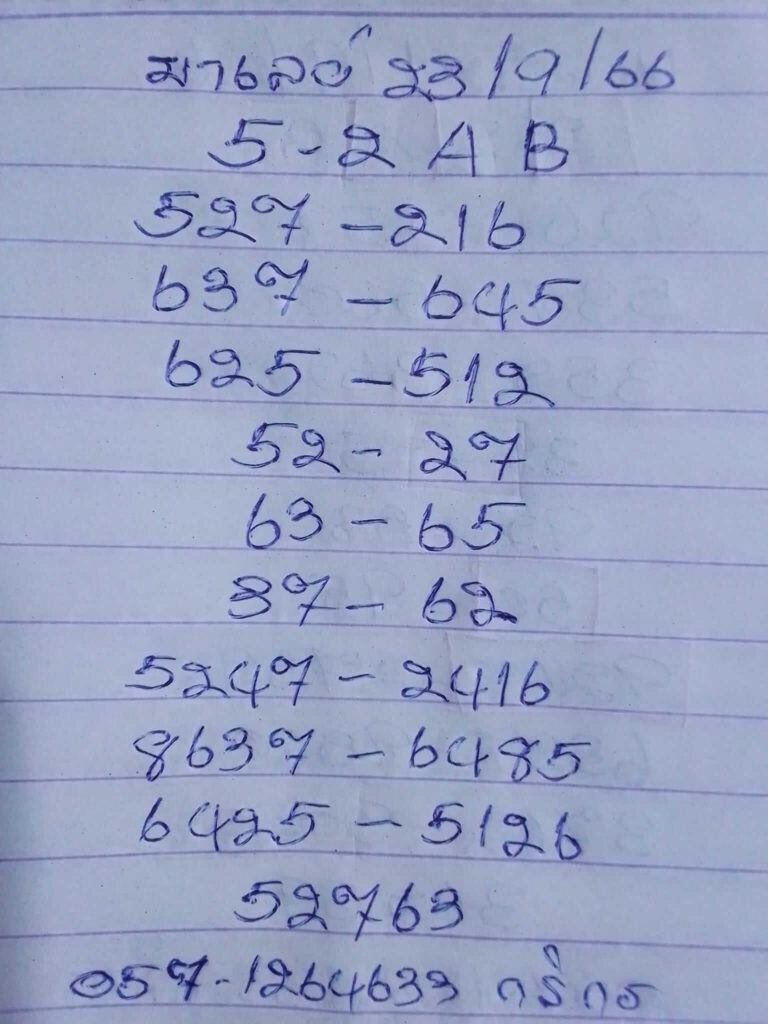 มาเลย์ 23/9/66
5-2 A B
527-216
637-645
625-512
52-27
63-65
37-62
5247-2416
8637-6485
6425-5126
52763
057-1264633